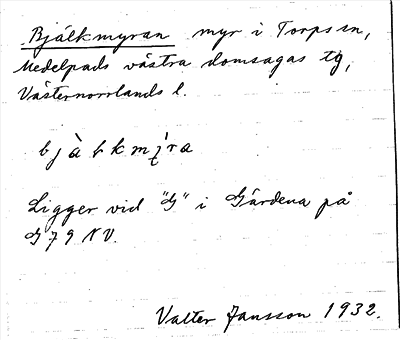 Bjälkmyran myr i Torps sn,
Medelpads västra domsagas tg,
Västernorrlands l.
Ligger vid "G" i Gårdena på
G 79 NV.
Valter Jansson 1932.